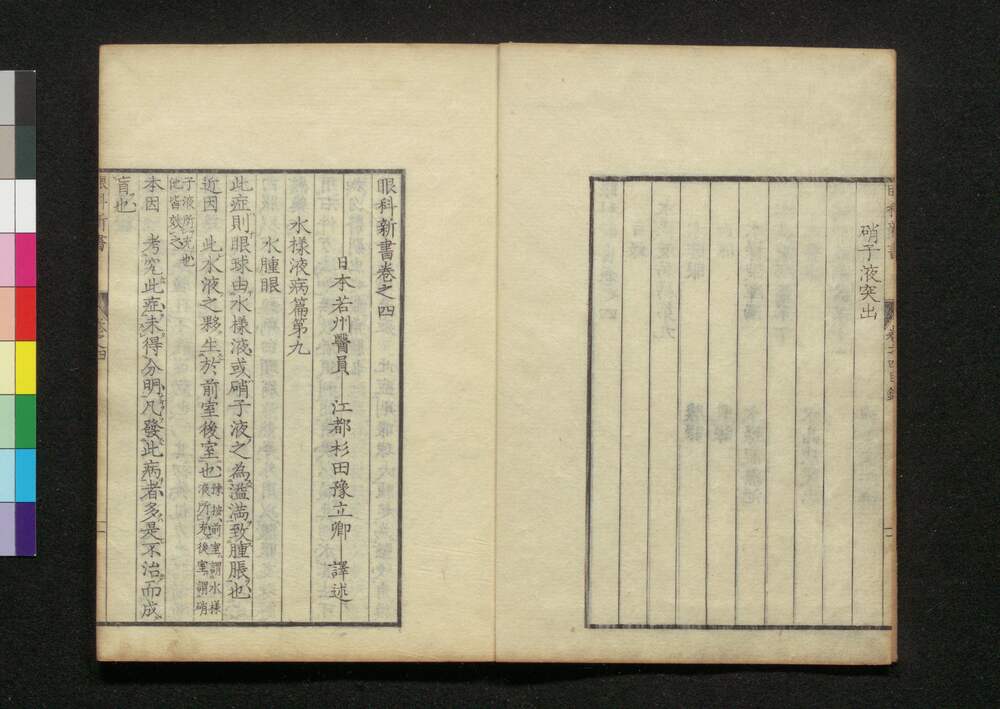 硝子液突出
眼科新書卷之四
日本若州醫員 江都杉田豫立卿 譯述
水樣液病篇第九
水腫眼
此症則眼球由水樣液或硝子液之為滥満致腫脹也
近因 此水液之夥生於前室後室也豫按前室謂水樣液所充後室謂硝
子液所充也他皆效之
本因 考究此症未得分明凡發此病者多是不治而成
盲也
眼科新書
卷之四
一